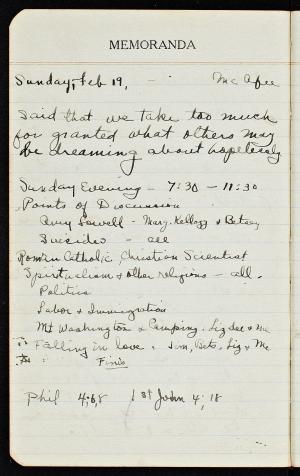 MEMORANDA
Sunday, Feb 19, - Mc Afee
Said that we take too much
for granted what others may
be dreaming about hopelessly
Sunday Evening - 7:30 - 11:30
Points of Discussion
Amy Lowell - Mary Kellogg & Betsy
Suicides - all
Roman Catholic, Christian Scientist
Spiritualism & other religions - all.
Politics
Labor & Immigration
Mt Washington & Camping. Liz dee & me
Falling in love. Jim, Bets, Liz & Me
Finis
Phil 4:6,8 1st John 4:18